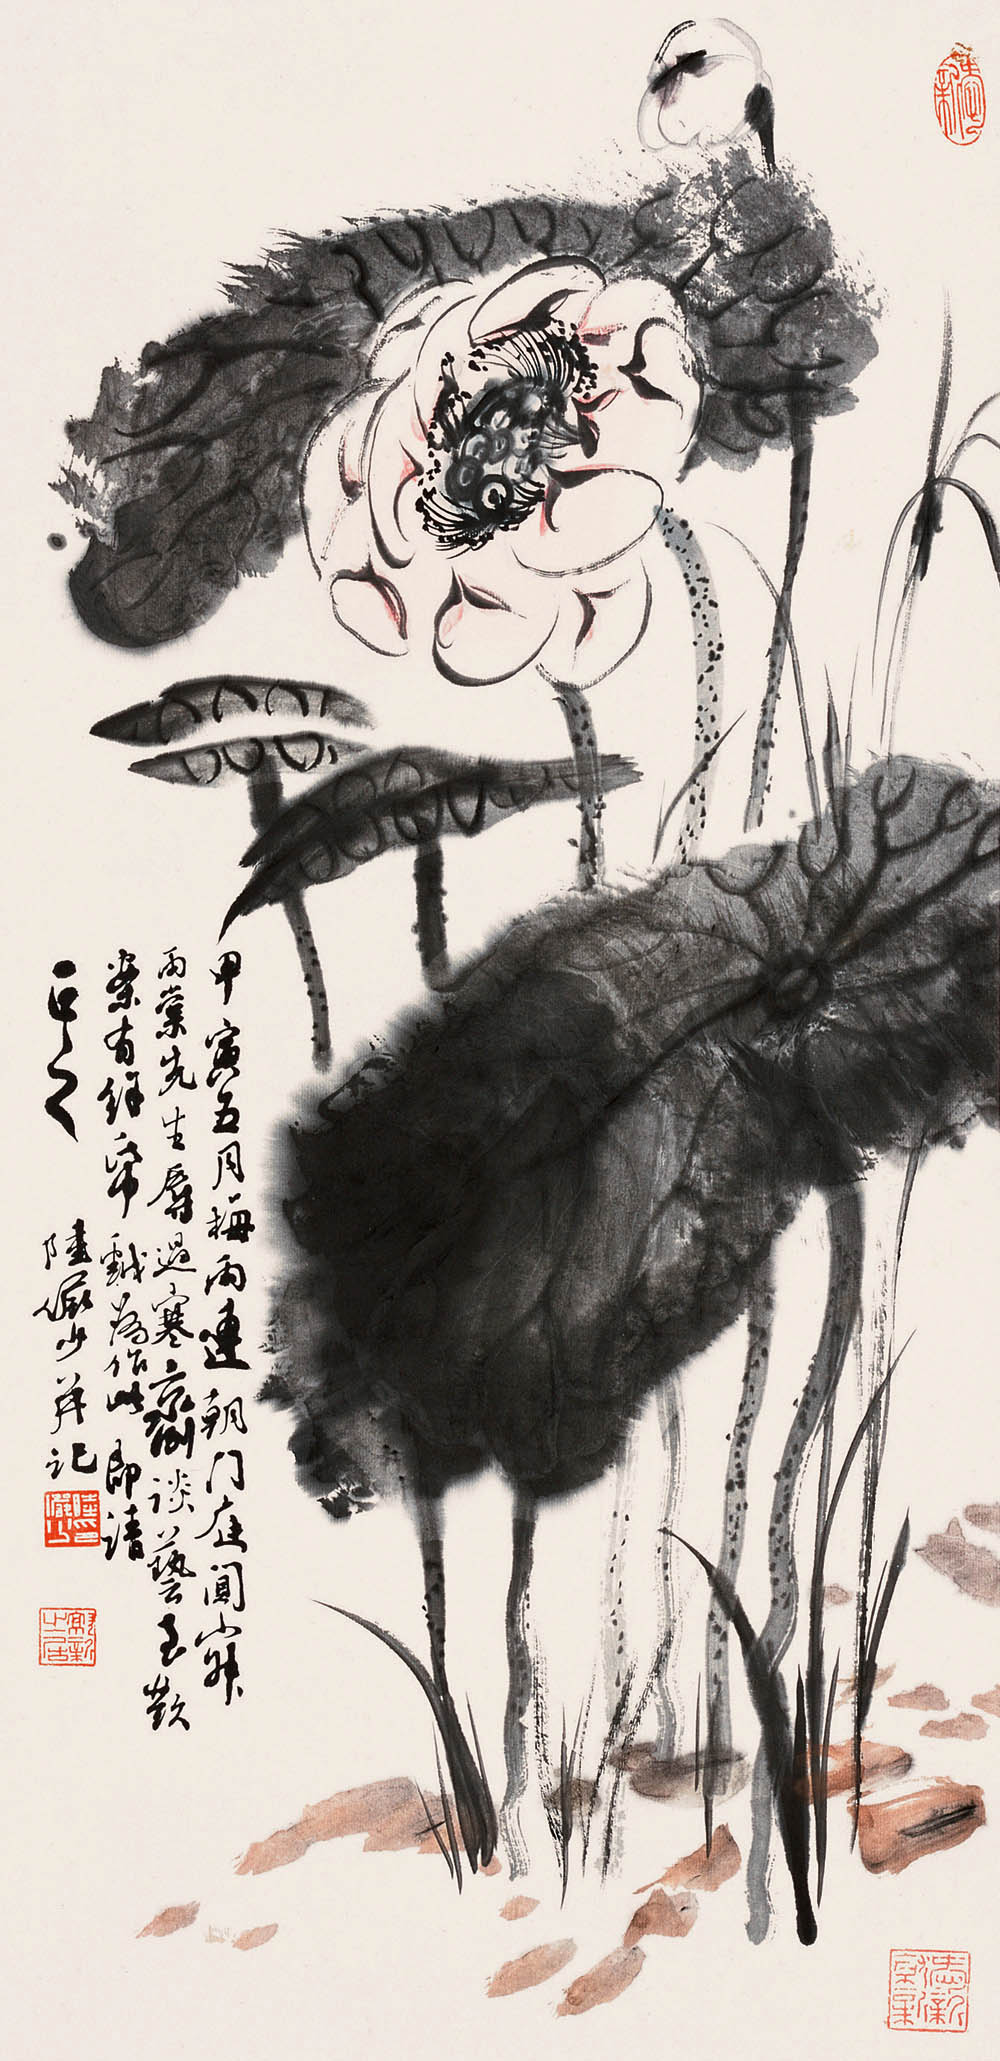 甲寅五月梅雨連朝門庭闃寂
雨棠先生辱過寒齋劇談藝至歡
案有餘帋戲為作此即請
正之 陸儼少并記